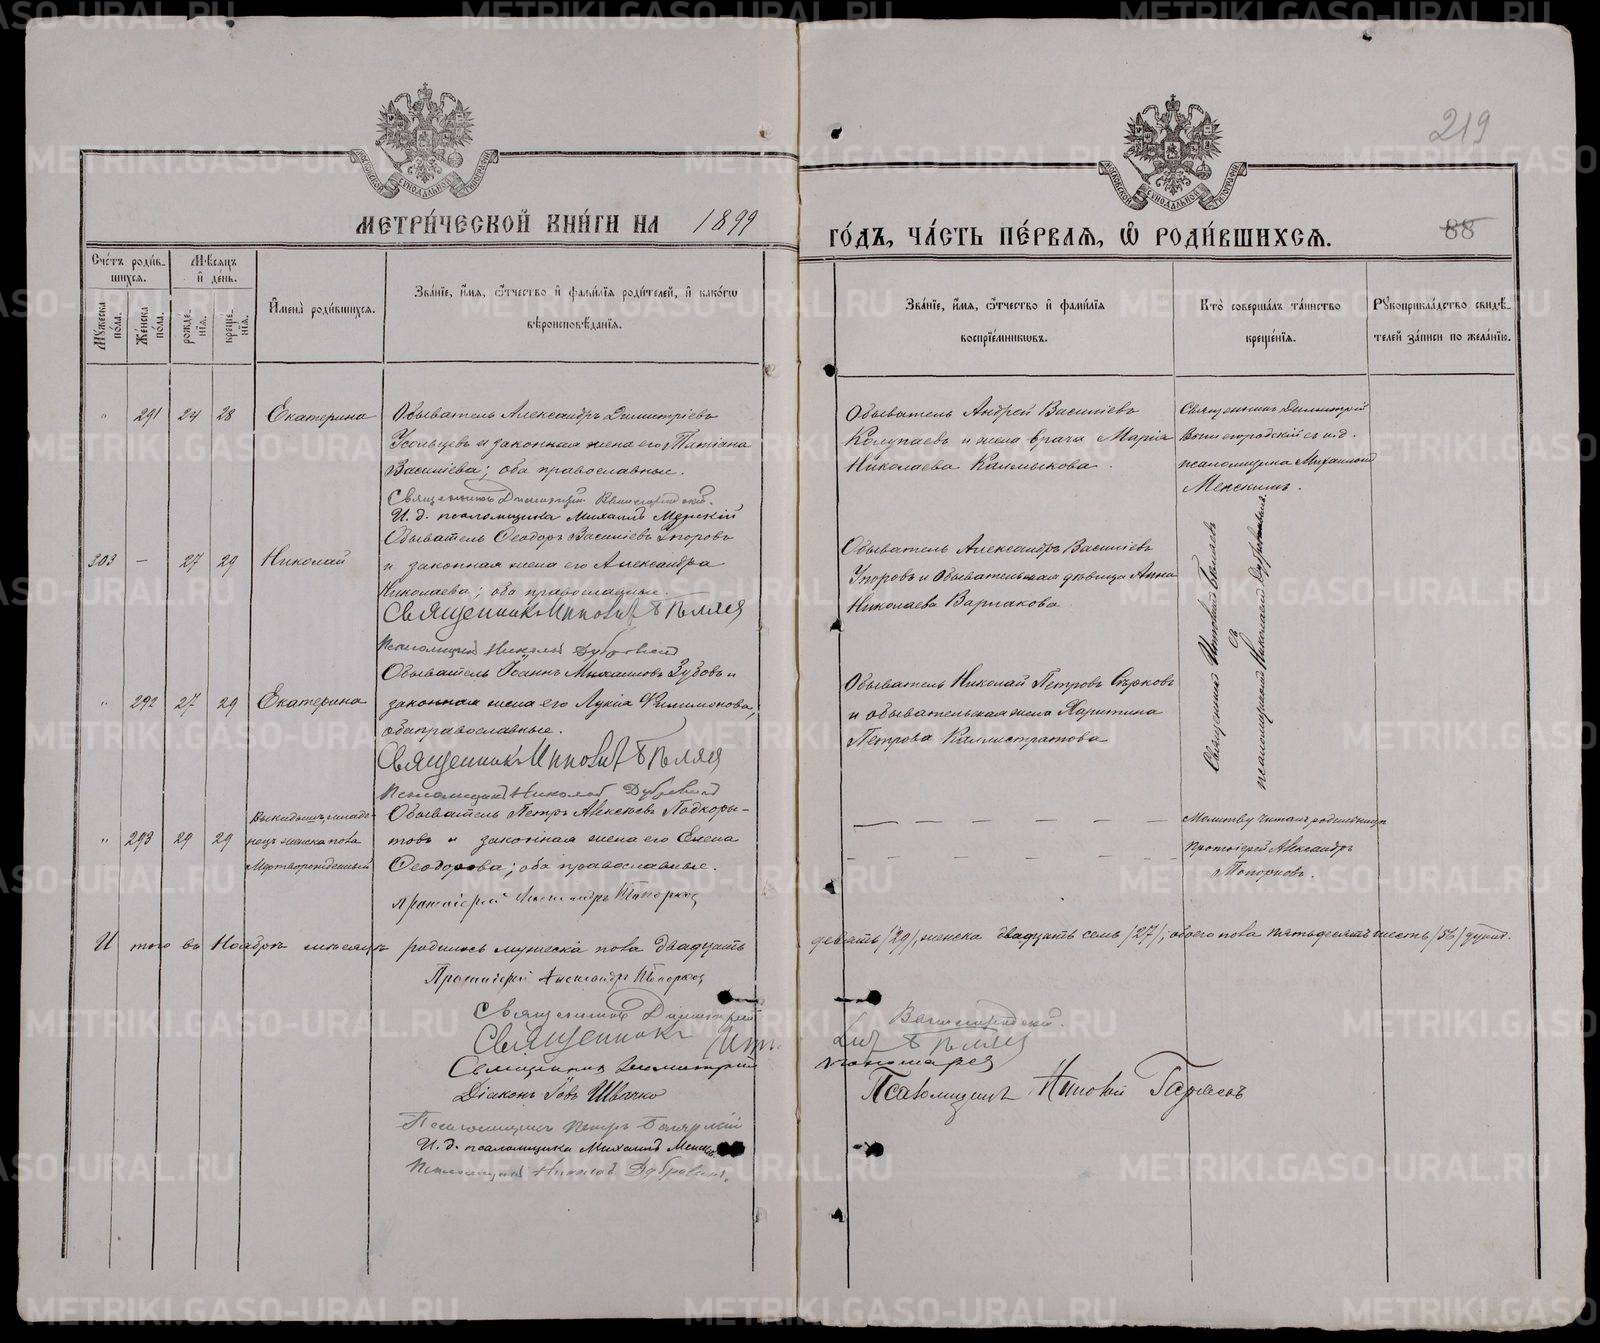 219
МОСКОВСКОЙ СѴНОДАЛЬНОЙ ТИПОГРАФІИ
МОСКОВСКОЙ СѴНОДАЛЬНОЙ ТИПОГРАФІИ
МЕТРИ́ЧЕСКОЙ КНИ́ГИ НА 1899
ГО́ДЪ, ЧА́СТЬ ПЕ́РВАЯ, Ѡ РОДИ́ВШИХСЯ.
88
Сче́тъ роди́в-
шихся.
Мѣсяцъ
и де́нь.
Мꙋжеска
по́ла.
Же́нска
по́ла.
рожде-
нїѧ.
креще-
нїѧ.
Имена̀ роди́вшихся.
Зва́нїе, и́мя, ѻ́тчество и фами́лїя роди́телей, и како́гѡ
вѣроисповѣ́данїя.
Зва́нїе, и́мя, ѻ́тчество и фами́лїя
воспрїе́мникѡвъ.
Кто̀ соверша́лъ та́инство
креще́нїя.
Рꙋкоприкла́дство свидѣ́-
телей за́писи по жела́нїю.
" 291 24 28 Екатерина
Обыватель Александръ Димитріевъ
Усольцевъ и законная жена его Татіана
Василіева; оба православные.
Священникъ Димитрій Вышегородскій.
И. д. псаломщика Михаилъ Менскій
Обыватель Андрей Василіевъ
Колупаевъ и жена врача Марія
Николаева Калмыкова.
Священникъ Димитрій
Вышегородскій съ и.д.
псаломщика Михаиломъ
Менскимъ.
303 — 27 29 Николай
Обыватель Ѳеодоръ Василіевъ Упоровъ
и законная жена его Александра
Николаева; оба православные.
Священникъ Иннокентій Бѣляевъ
Псаломщикъ Николай Дубровскій
Обыватель Александръ Василіевъ
Упоровъ и обывательская дѣвица Анна
Николаева Варлакова
Священникъ Бѣляевъ
съ
псаломщикомъ Николаемъ Дубровскимъ.
" 292 27 29 Екатерина
Обыватель Іоаннъ Михаиловъ Зубовъ и
законная жена его Лукія Филимонова,
оба православные.
Псаломщикъ Николай Дубровскій
Обыватель Николай Петровъ Сѣрковъ
и обывательская жена Харитина
Петрова Каллистратова
" 293 29 29 Выкидышъ, младе-
нецъ женска пола
Мертворожденный
Обыватель Петръ Алексѣевъ Подкоры-
товъ и законная жена его Елена
Ѳеодорова; оба православные.
Протоіерей Александръ Топорковъ
Молитву читалъ родильницѣ
протоіерей Александръ
Топорковъ.
И того въ Ноябрѣ мѣсяцѣ родилось мужеска пола двадцать девять /29/, женска двадцать семь /27/; обоего пола пятьдесятъ шесть /56/ душъ.
Протоіерей Александръ Топорковъ
Священникъ Димитрій Вышегородскій.
Священникъ Бѣляевъ
Священникъ Димитрій Пономаревъ
Діаконъ Іовъ Швачко
Псаломщикъ Гарясовъ
Псаломщикъ Петръ
И. д. псаломщика Михаилъ Менскій
Псаломщикъ Николай Дубровскій.
METRIKI.GASO-URAL.RU